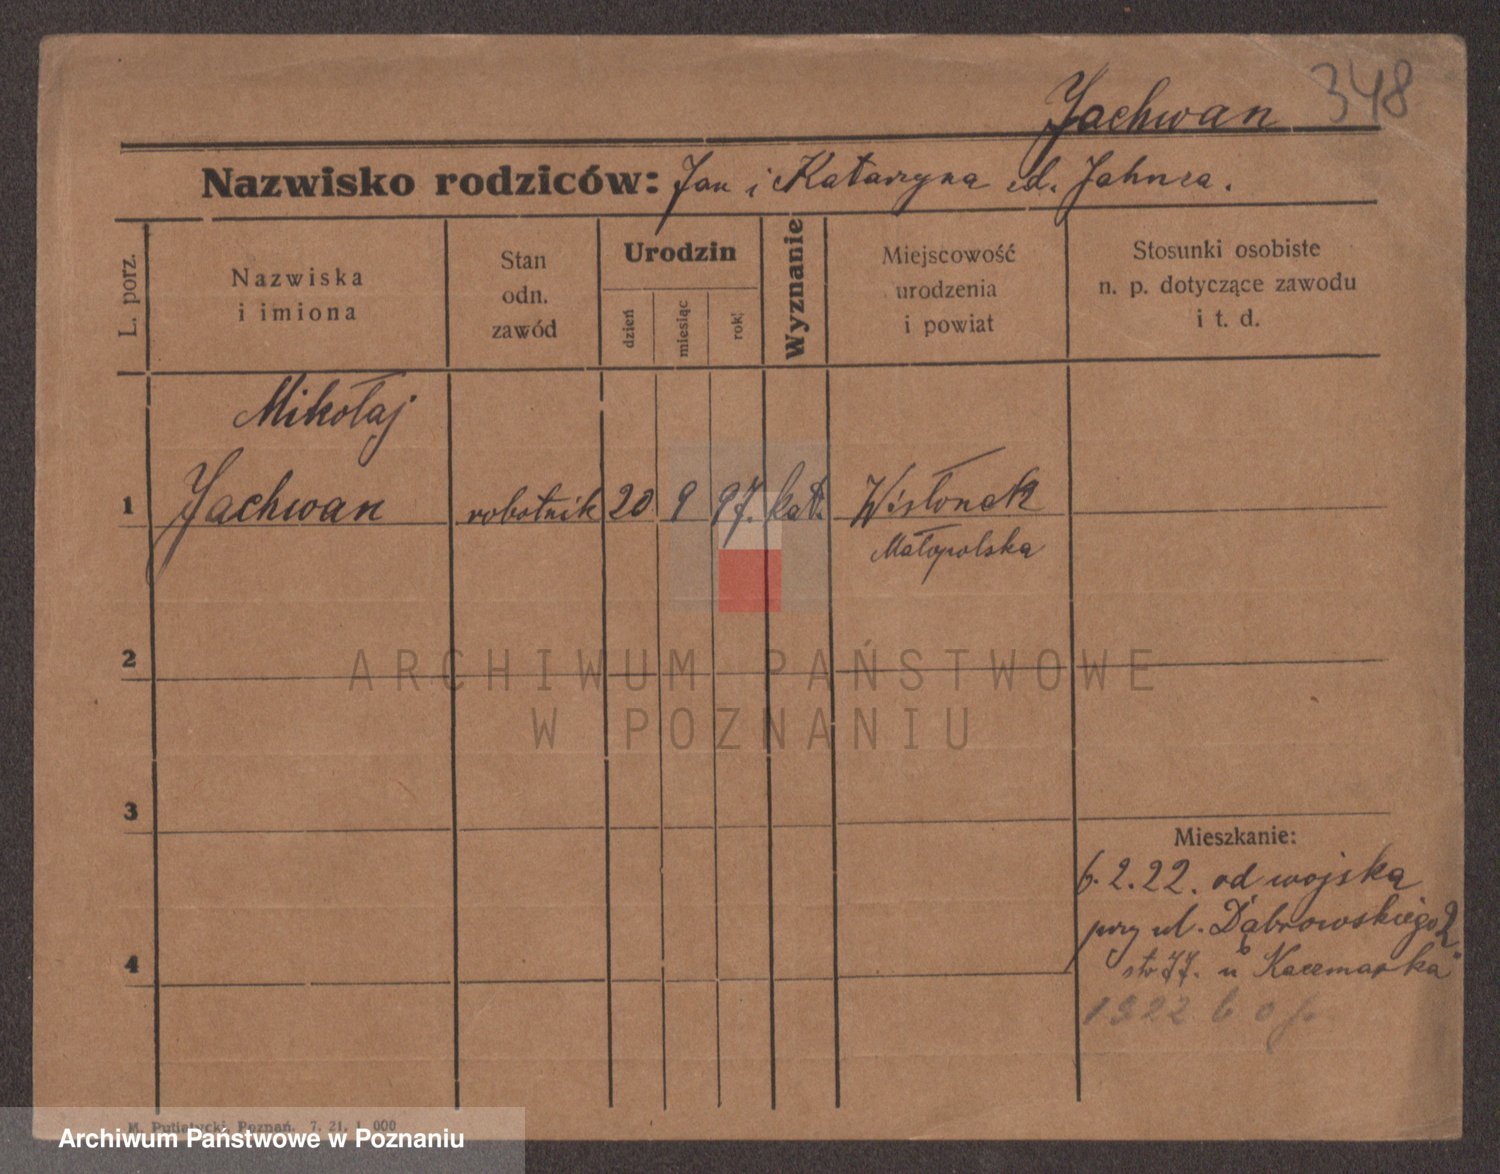 Jachwan 348
Nazwisko rodziców: Jan i Katarzyna Jahnza.
L. porz.
Nazwiska
i imiona
Stan
odn.
zawód
Urodzin
dzień
miesiąc
rok
Wyznanie
Miejscowość
urodzenia
i powiat
Stosunki osobiste
n. p. dotyczące zawodu
i t. d.
Mikołaj
1 Jachwan robotnik 20 9 97. kat. Wisłonak
Małopolska
2
ARCHIWUM PAŃSTWOWE
W POZNANIU
3
Mieszkanie:
6. 2. 22. od wojska
przy ul. Dąbrowskiego
4 u Kaczmarka
1922
M. Putiatycki, Poznań. 7. 21. 1 000
Archiwum Państwowe w Poznaniu